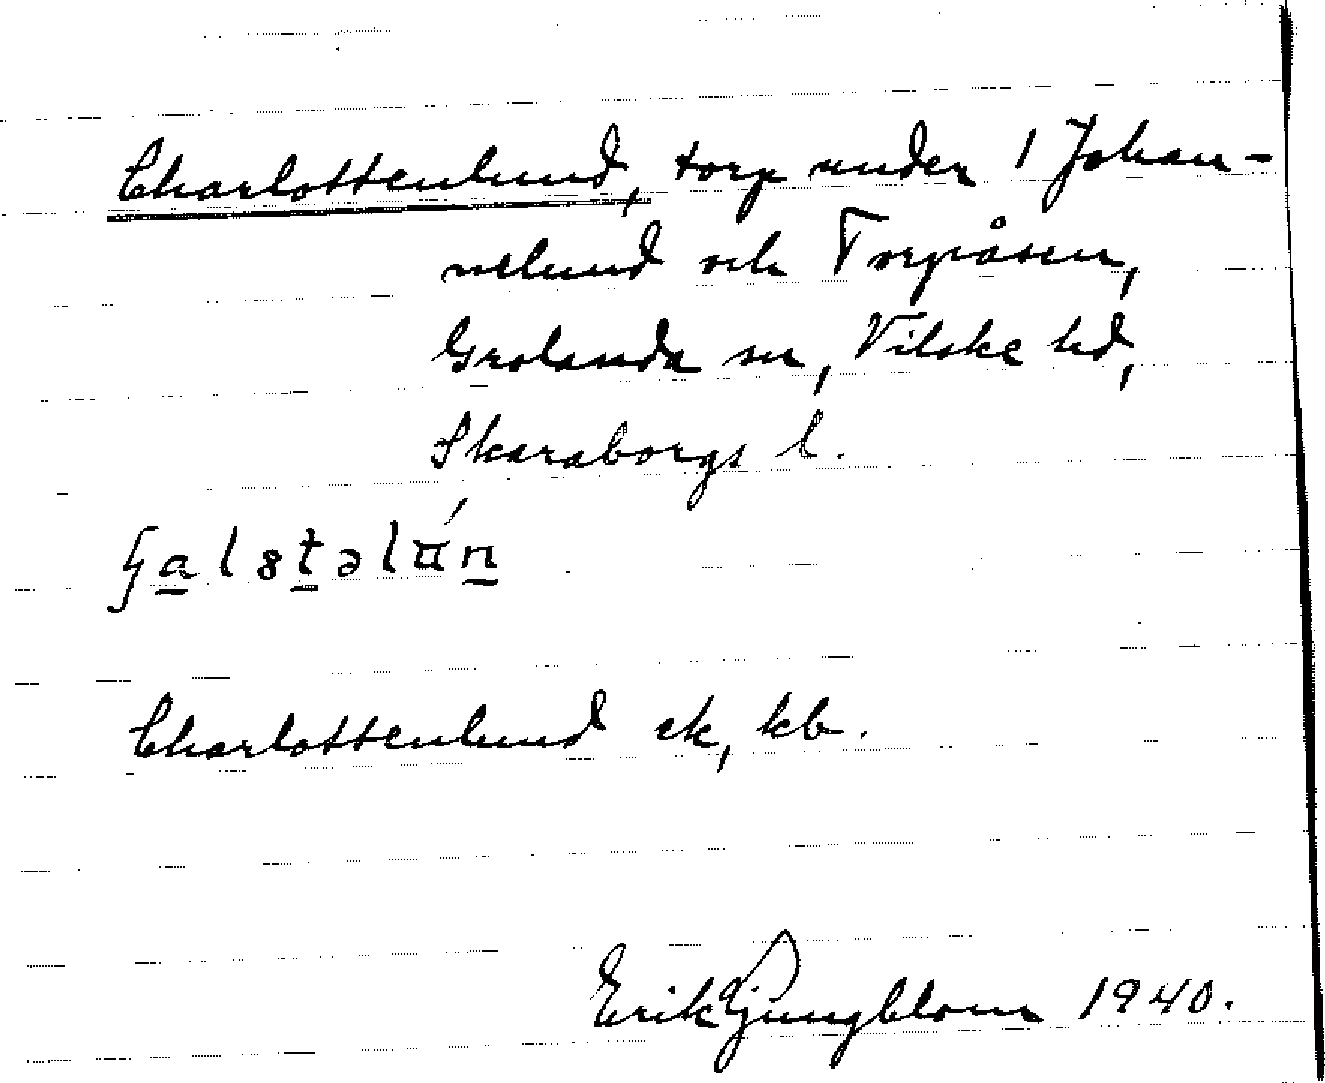 Charlottenlund, torp under 1 Johan-
nelund och Torpåsen,
Grolanda sn, Vilske hd,
Skaraborgs l.
Charlottenlund ek, kb.
Erik Ljungblom 1940.